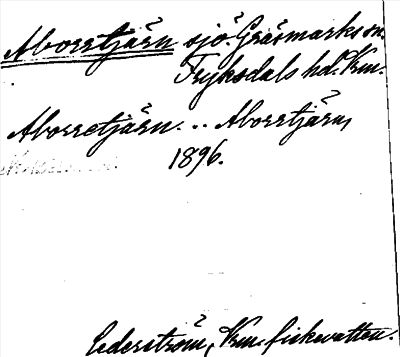 Aborrtjärn sjö. Gräsmarks sn.
Fryksdals hd. Krm.
Aborretjärn. .. Aborrtjärn,
1896.
Cederström, Krm. fiskevatten.